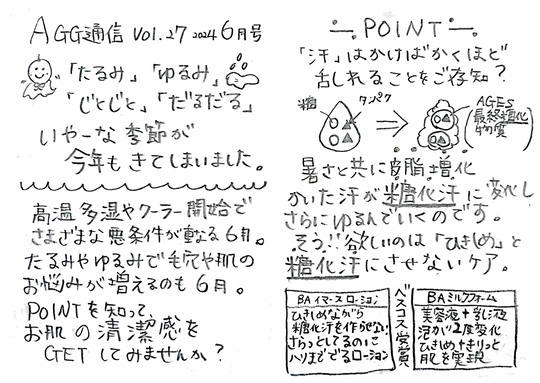 AGG通信 Vol.27 2024 6月号
「たるみ」「ゆるみ」
「じとじと」「だるだる」
いやーな季節が
今年もきてしまいました。
高温多湿やクーラー開始で
さまざまな悪条件が重なる6月。
たるみやゆるみで毛穴や肌の
お悩みが増えるのも6月。
POINTを知って、
お肌の清潔感を
GETしてみませんか?
POINT
「汗」はかけばかくほど
乱れることをご存知?
糖
タンパク
AGES
最終糖化
物質
暑さと共に皮脂増化
かいた汗が糖化汗に変化し
さらにゆるんでいくのです。
そう!!欲しいのは「ひきしめ」と
糖化汗にさせないケア。
BAイマースローション
ひきしめながら
糖化汗を作らない
さらっとしてるのに
ハリまででるローション
ベスコス受賞
BAミルクフォーム
美容液+乳液
泡が2度変化
ひきしめ+きりっと
肌を実現